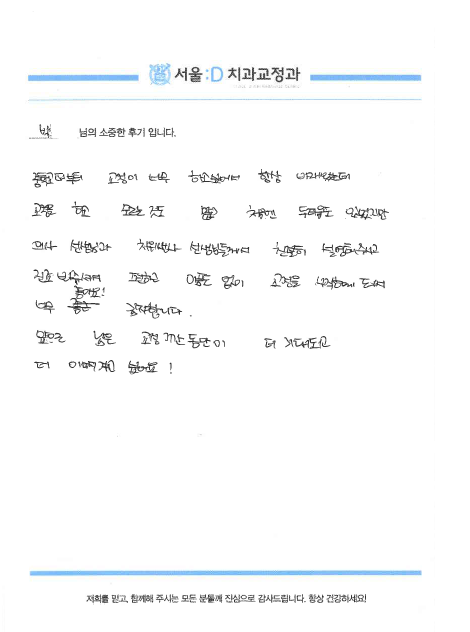 서울:D 치과교정과
박 님의 소중한 후기 입니다.
중학교때부터 교정이 너무 하고싶어서 항상 바래왔는데
교정을 하고 모르는 것도 많고 처음엔 두려움도 있었지만
의사 선생님과 치위생사 선생님들께서 친절히 설명해주시고
진료 봐주셔서 편하고 아픔도 없이 교정을 시작하게 되서
좋아요!
너무 감사합니다.
앞으로 남은 교정 기간 동안이 더 기대되고
더 이뻐지고 싶어요!
저희를 믿고, 함께해 주시는 모든 분들께 진심으로 감사드립니다. 항상 건강하세요!